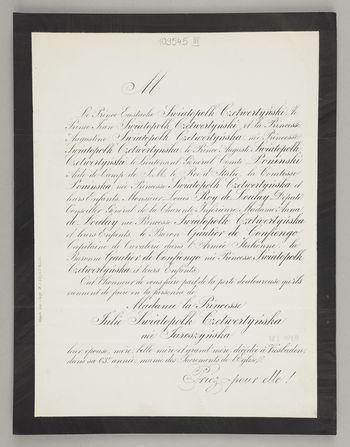 109545 III
M
Le Prince Eustache Swiatopolk Czetwertyński, le
Prince Jean Swiatopolk Czetwertyński et la Princesse
Augustine Swiatopolk Czetwertyńska née Princesse
Swiatopolk Czetwertyńska, le Prince Auguste Swiatopolk
Czetwertyński, le Lieutenant Général Comte Poninski
Aide de Camp de S.M. le Roi d'Italie, la Comtesse
Poninska née Princesse Swiatopolk Czetwertyńska et
leurs Enfants, Monsieur Louis Roy de Loulay, Député
Conseiller Général de la Charente Inférieure, Madame
de Loulay née Princesse Swiatopolk Czetwertyńska
et leurs Enfants, le Baron Gautier de Confiengo
Capitaine de Cavalerie dans l'Armée Italienne, la
Baronne Gautier de Confiengo née Princesse Swiatopolk
Czetwertyńska et leurs Enfants;
Ont l'honneur de vous faire part de la perte douloureuse qu'ils
viennent de faire en la personne de
Madame la Princesse
Julie Swiatopolk Czetwertyńska
née Jaroszyńska
leur épouse, mère, belle mère et grand'mère, décédée à Wiesbaden,
dans sa 63e année, munie des Sacrements de l'Eglise.
Priez pour elle!